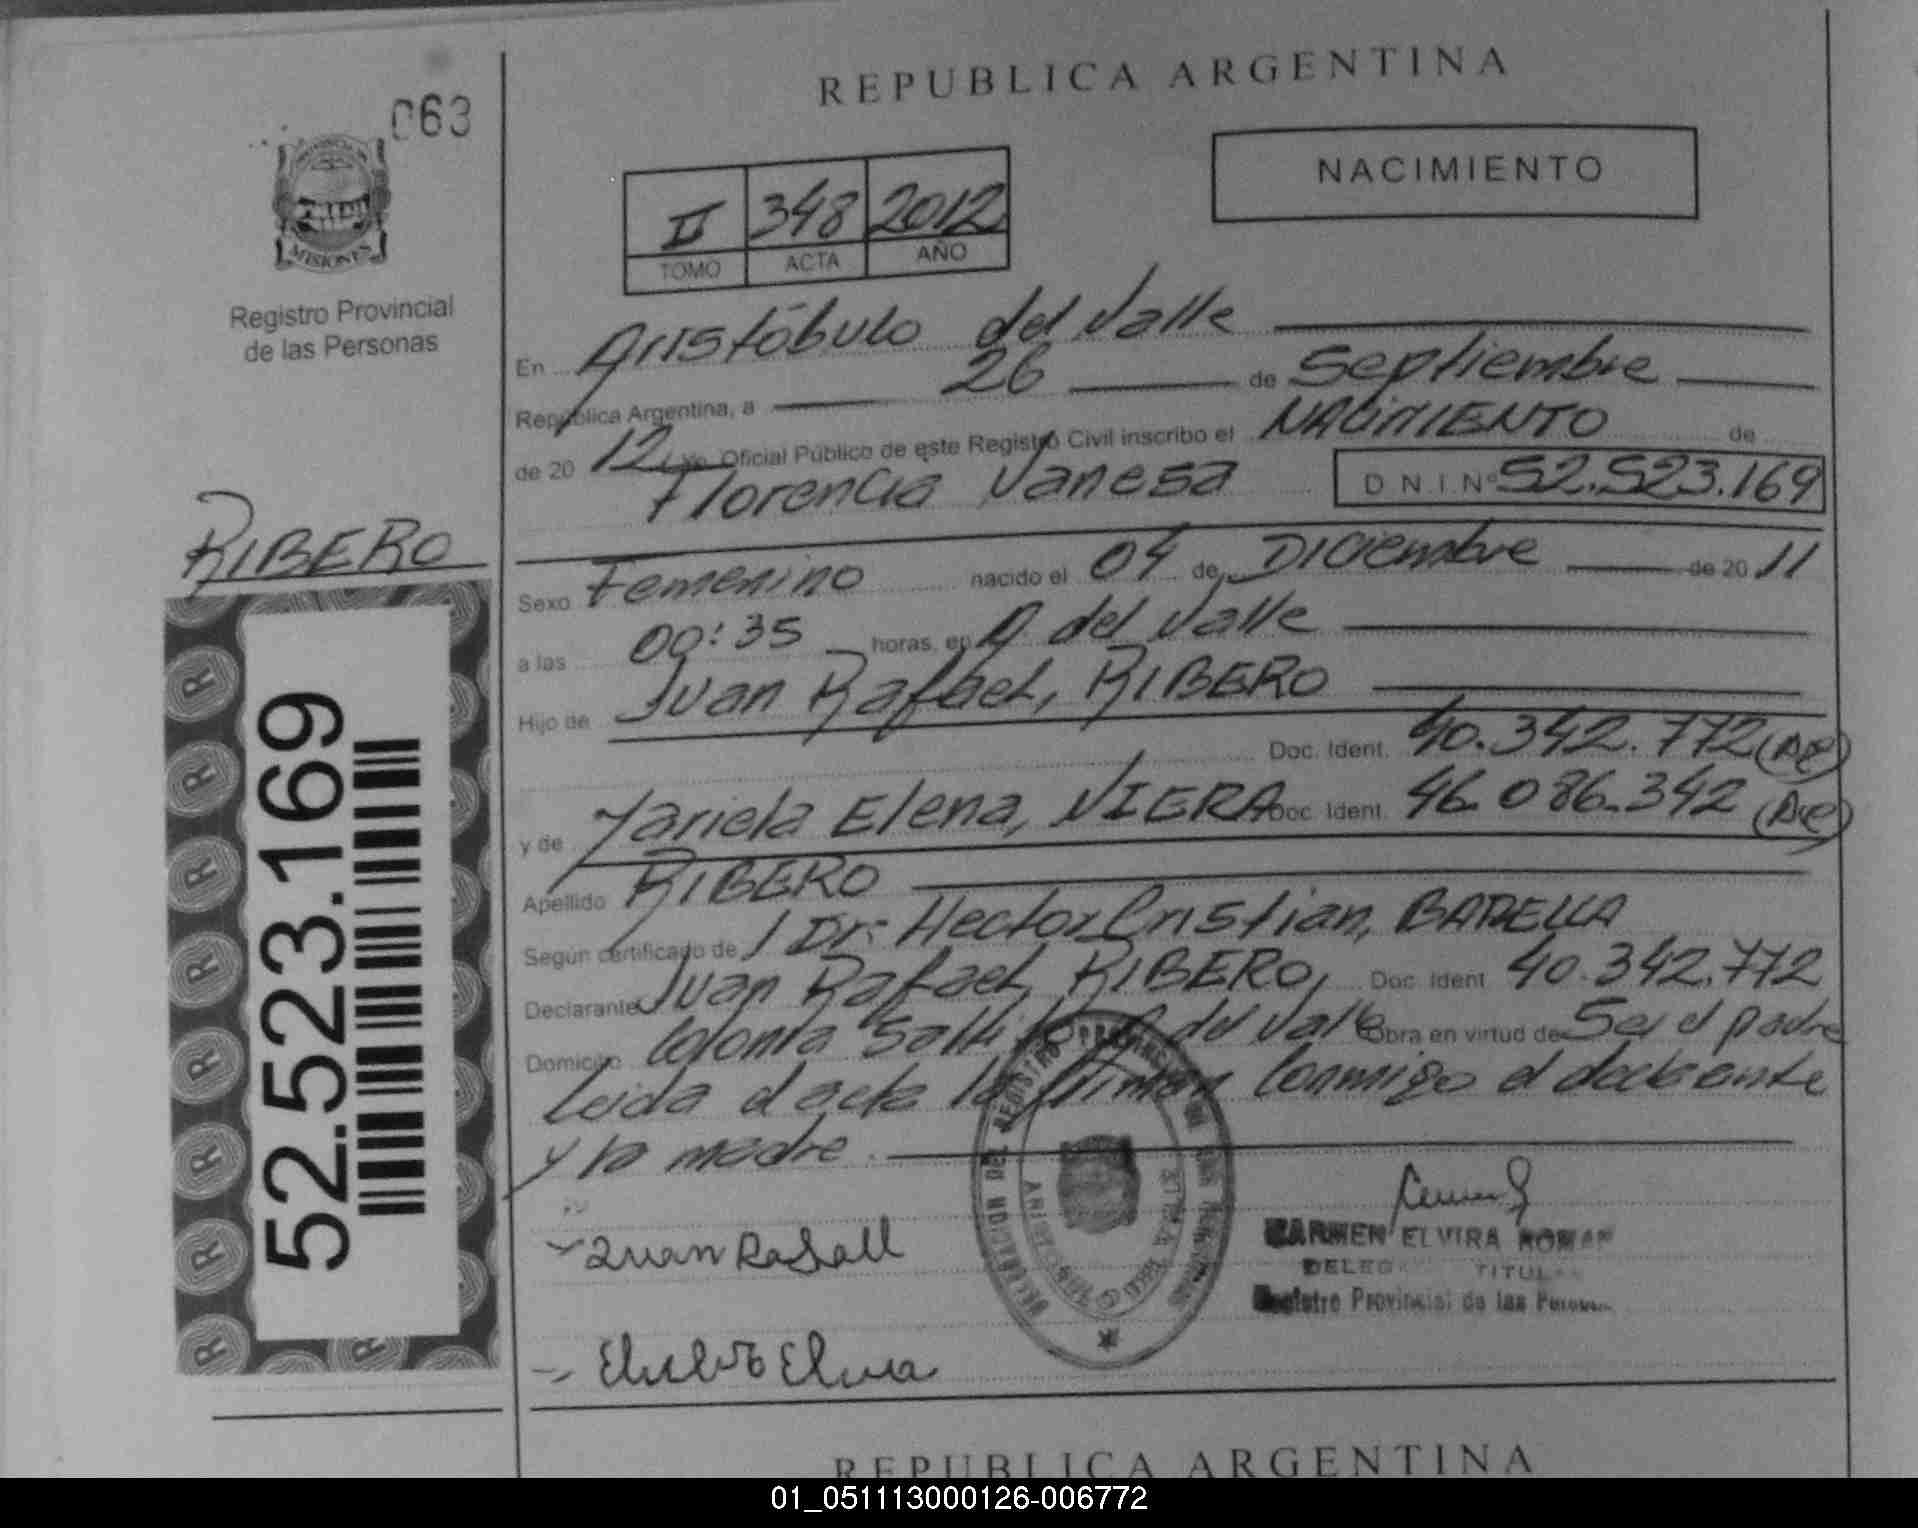 REPUBLICA ARGENTINA
063
NACIMIENTO
II 348 2012
TOMO ACTA AÑO
MISIONES
Registro Provincial
de las Personas
En Aristóbulo del Valle
República Argentina, a 26 de Septiembre
de 2012 yo, Oficial Público de este Registro Civil inscribo el NACIMIENTO de
Florencia Vanesa D N I Nº 52.523.169
RIBERO
Sexo Femenino nacido el 04 de Diciembre de 2011
a las 00:35 horas, en A. del Valle
Hijo de Juan Rafael, RIBERO
Doc. Ident. 40.342.772
y de Elena, VIERA Doc. Ident. 46.086.342
Apellido RIBERO
Según certificado de Dr: Hector Cristian,
Declarante Juan Rafael RIBERO, Doc. Ident 40.342.772
Domicilio Colonia A del Valle Obra en virtud de Ser el padre
Leida el acta la firman conmigo el declarante
y la madre.
52.523.169
Juan
CARMEN ELVIRA ROMAN
Registro Provincial de las
Elena
REPUBLICA ARGENTINA
01_051113000126-006772